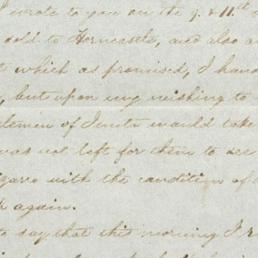 wrote to you on the 9. & 11th
sold to Horncastle, and also a
which as promised, I have
, but upon my wishing to
tlemen of would take
was not left for them to see
with the condition of
again.
to say that this morning I r